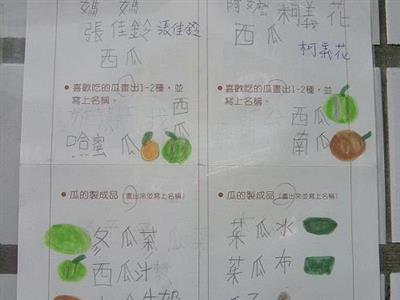 媽媽
張佳鈴 張佳鈴
西瓜
喜歡吃的瓜畫出1-2種,並
寫上名稱。
西瓜
哈蜜瓜
瓜的製成品(畫出來並寫上名稱)
冬瓜茶
西瓜汁
木瓜牛奶
阿嬤 柯義花
西瓜 柯義花
喜歡吃的瓜畫出1-2種,並
寫上名稱。
西瓜
南瓜
瓜的製成品(畫出來並寫上名稱)
菜瓜水
菜瓜布